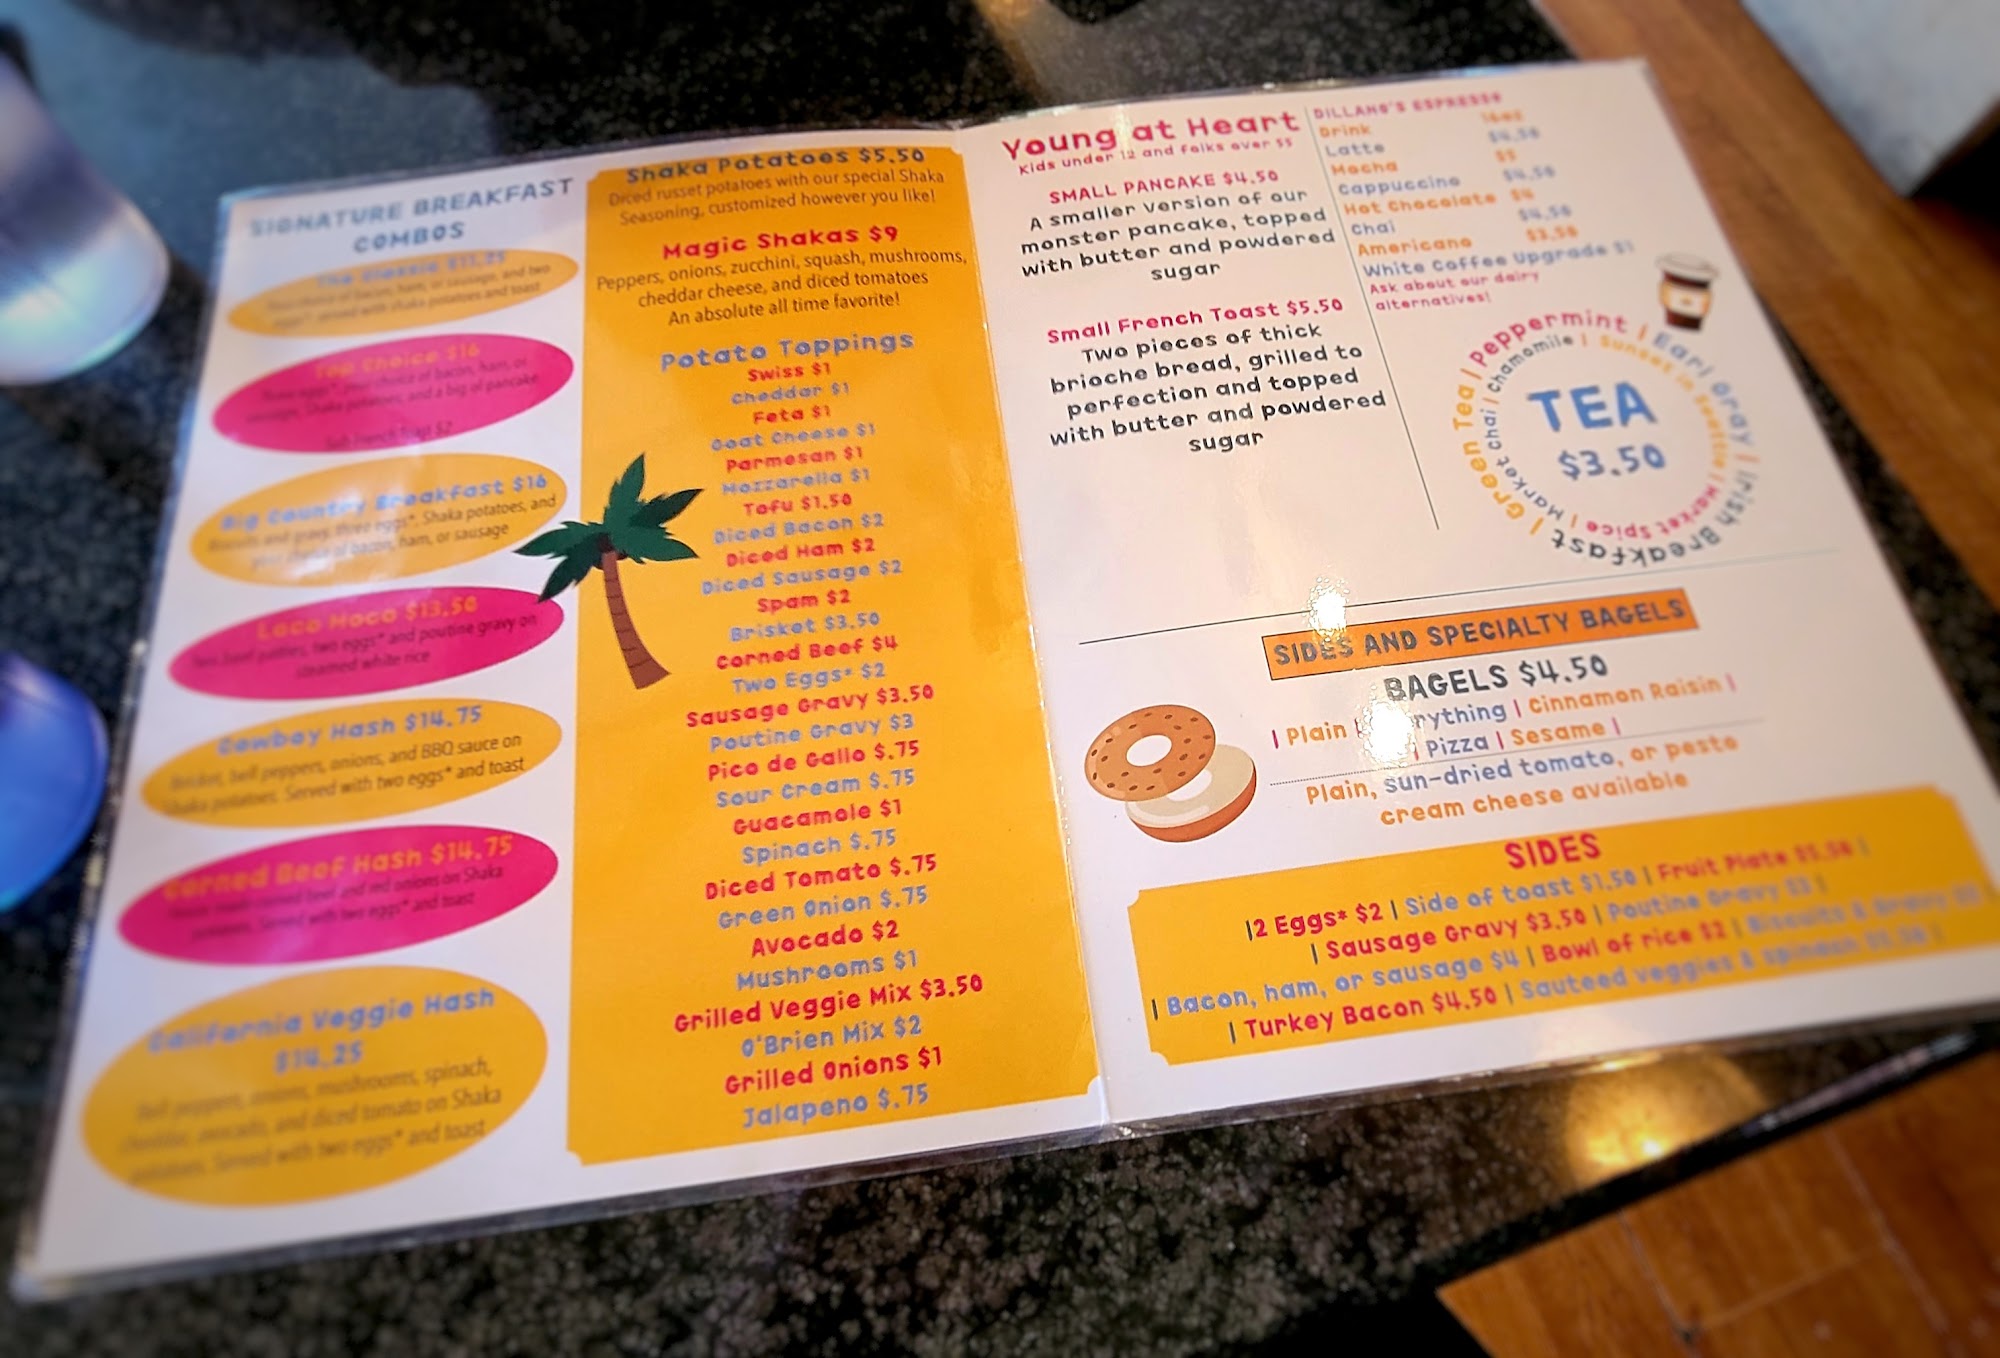 SIGNATURE BREAKFAST
COMBOS
The Classic $11.25
of bacon, ham, or sausage, and two
eggs*, served with shaka potatoes and toast
Top Choice $16
Three eggs*, your choice of bacon, ham, or
sausage, Shaka potatoes, and a big ol pancake
Sub French Toast $2
Big Country Breakfast $16
Biscuits and gravy, three eggs*, Shaka potatoes, and
your choice of bacon, ham, or sausage
Loco Moco $13.50
Two beef patties, two eggs* and poutine gravy on
steamed white rice
Cowboy Hash $14.75
Brisket, bell peppers, onions, and BBQ sauce on
Shaka potatoes. Served with two eggs* and toast
Corned Beef Hash $14.75
House made corned beef and red onions on Shaka
potatoes. Served with two eggs* and toast
California Veggie Hash
$14.25
Bell peppers, onions, mushrooms, spinach,
cheddar, avocado, and diced tomato on Shaka
potatoes. Served with two eggs* and toast
Shaka Potatoes $5.50
Diced russet potatoes with our special Shaka
Seasoning, customized however you like!
Magic Shakas $9
Peppers, onions, zucchini, squash, mushrooms,
cheddar cheese, and diced tomatoes
An absolute all time favorite!
Potato Toppings
Swiss $1
Cheddar $1
Feta $1
Goat Cheese $1
Parmesan $1
Mozzarella $1
Tofu $1.50
Diced Bacon $2
Diced Ham $2
Diced Sausage $2
Spam $2
Brisket $3.50
Corned Beef $4
Two Eggs* $2
Sausage Gravy $3.50
Poutine Gravy $3
Pico de Gallo $.75
Sour Cream $.75
Guacamole $1
Spinach $.75
Diced Tomato $.75
Green Onion $.75
Avocado $2
Mushrooms $1
Grilled Veggie Mix $3.50
O'Brien Mix $2
Grilled Onions $1
Jalapeno $.75
Young at Heart
Kids under 12 and folks over 55
SMALL PANCAKE $4.50
A smaller version of our
monster pancake, topped
with butter and powdered
sugar
Small French Toast $5.50
Two pieces of thick
brioche bread, grilled to
perfection and topped
with butter and powdered
sugar
DILLANO'S ESPRESSO
Drink 16oz
Latte $4.50
Mocha $5
Cappuccino $4.50
Hot Chocolate $4
Chai $4.50
Americano $3.50
White Coffee Upgrade $1
Ask about our dairy
alternatives!
| Green Tea | Peppermint | Earl Gray | Irish Breakfast
| Market Chai | Chamomile | Sunset in Seattle | Market Spice
TEA
$3.50
SIDES AND SPECIALTY BAGELS
BAGELS $4.50
| Plain | Everything | Cinnamon Raisin |
| Pizza | Sesame |
Plain, sun-dried tomato, or pesto
cream cheese available
SIDES
|2 Eggs* $2 | Side of toast $1.50 | Fruit Plate $5.50 |
| Sausage Gravy $3.50 | Poutine Gravy $3 |
| Bacon, ham, or sausage $4 | Bowl of rice $2 | Biscuits & Gravy
| Turkey Bacon $4.50 | Sauteed veggies & spinach $5.50 |